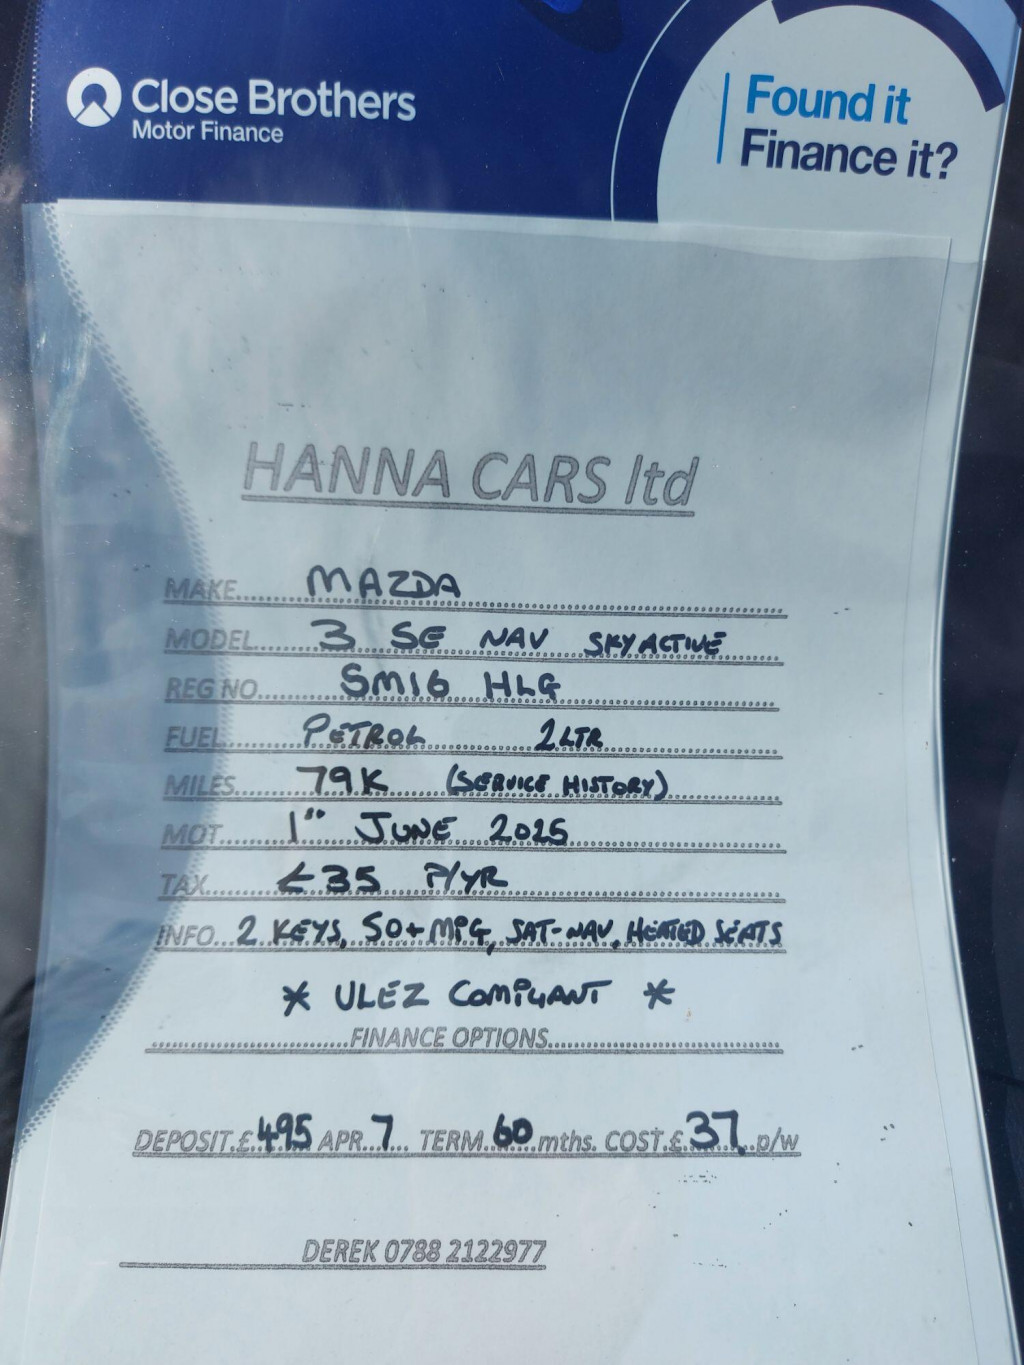 Close Brothers
Motor Finance
Found it
Finance it?
HANNA CARS ltd
MAKE.....MAZDA
MODEL.....3 SE NAV SKYACTIVE
REG NO.....SM16 HLG
FUEL.....PETROL 2LTR
MILES.....79K (SERVICE HISTORY)
MOT.....1" JUNE 2025
TAX.....£35 P/YR
INFO...2 KEYS, 50+ MPG, SAT-NAV, HEATED SEATS
* ULEZ COMPLIANT *
FINANCE OPTIONS
DEPOSIT.£.495 APR..7... TERM..60.mths. COST.£.37..p/w
DEREK 0788 2122977